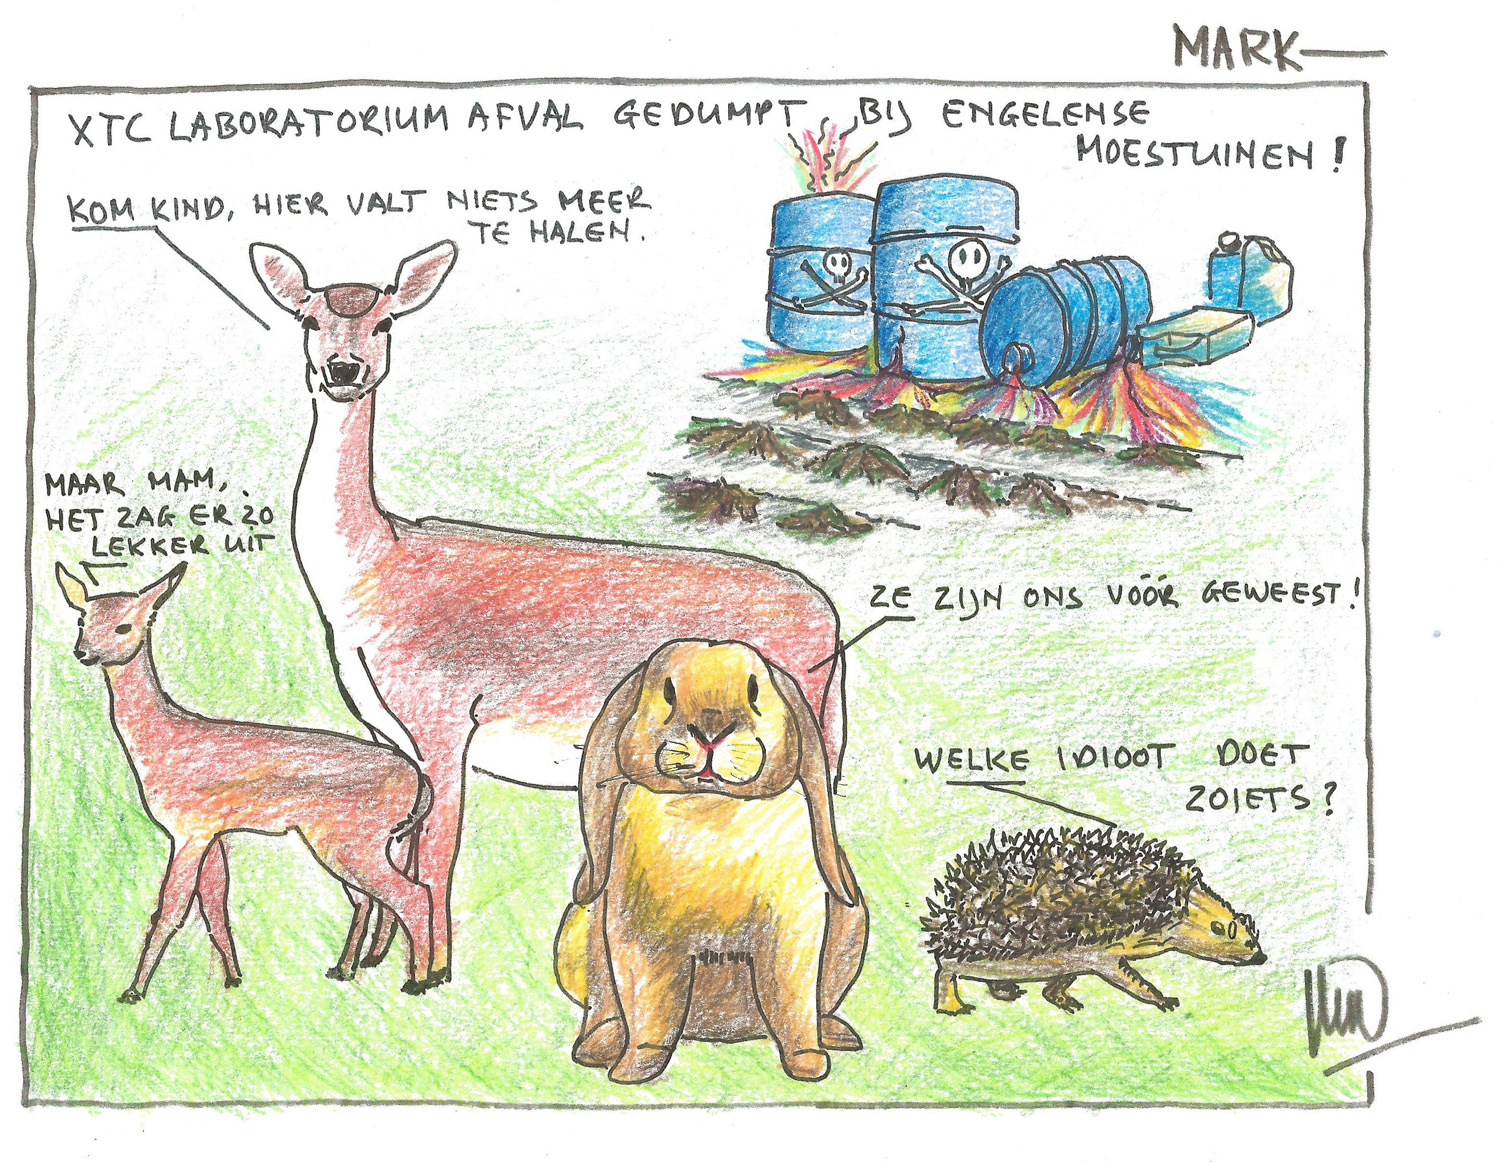 MARK
XTC LABORATORIUM AFVAL GEDUMPT BIJ ENGELENSE
MOESTUINEN!
KOM KIND, HIER VALT NIETS MEER
TE HALEN.
MAAR MAM,
HET ZAG ER ZO
LEKKER UIT
ZE ZIJN ONS VÓÓR GEWEEST!
WELKE IDIOOT DOET
ZOIETS?